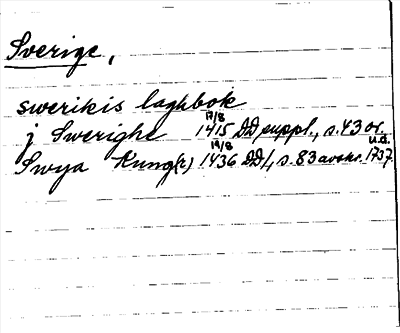 Sverige,
swerikis laghbok
j Swerighe 17/8 1415 DD suppl., s. 43 or.
Swya Kung(r) 19/8 1436 DD 1, s. 83 avskr. u.å. 1737.